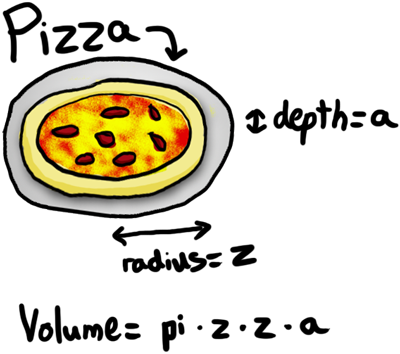 Pizza
depth=a
radius=z
Volume= pi · z · z · a